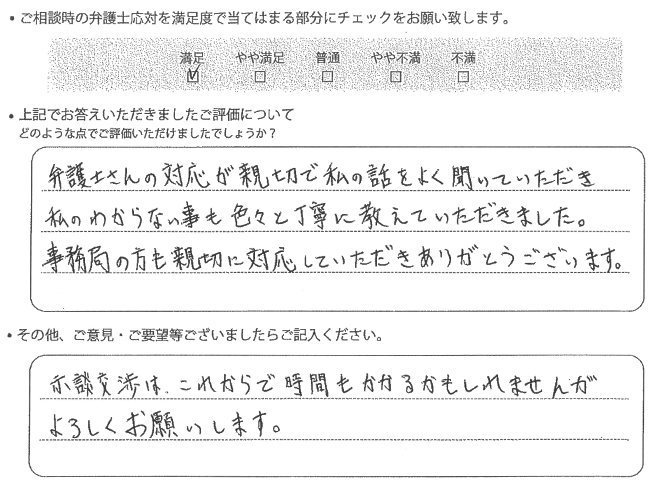 ・ご相談時の弁護士応対を満足度で当てはまる部分にチェックをお願い致します。
満足 やや満足 普通 やや不満 不満
☑ □ □ □ □
・上記でお答えいただきましたご評価について
どのような点でご評価いただけましたでしょうか？
弁護士さんの対応が親切で私の話をよく聞いていただき
私のわからない事も色々と丁寧に教えていただきました。
事務局の方も親切に対応していただきありがとうございます。
・その他、ご意見・ご要望等ございましたらご記入ください。
示談交渉は、これからで時間もかかるかもしれませんが
よろしくお願いします。